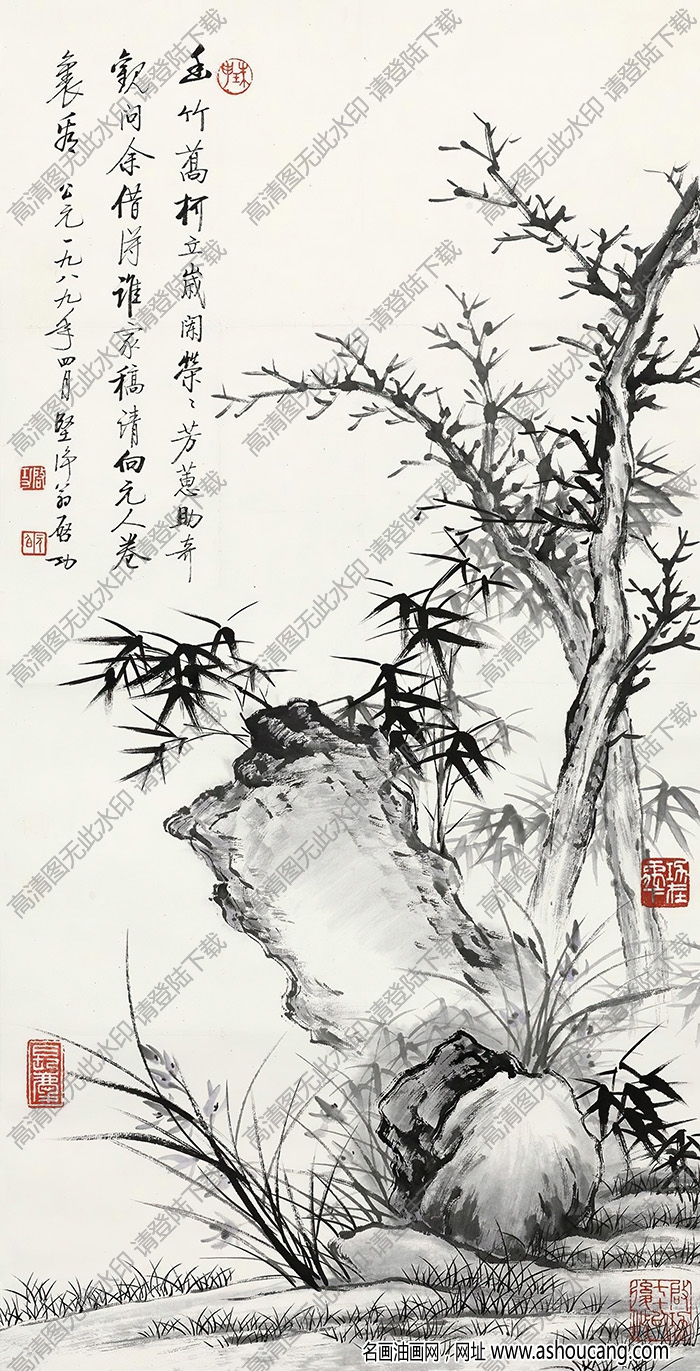 竹柯立歲闌榮〻芳蕙助奇
觀問余借得誰家稿請向元人卷
裏看 公元一九八九年四月堅淨翁啟功
高清图无此水印 请登陆下载
名画油画网/网址 www.ashoucang.com